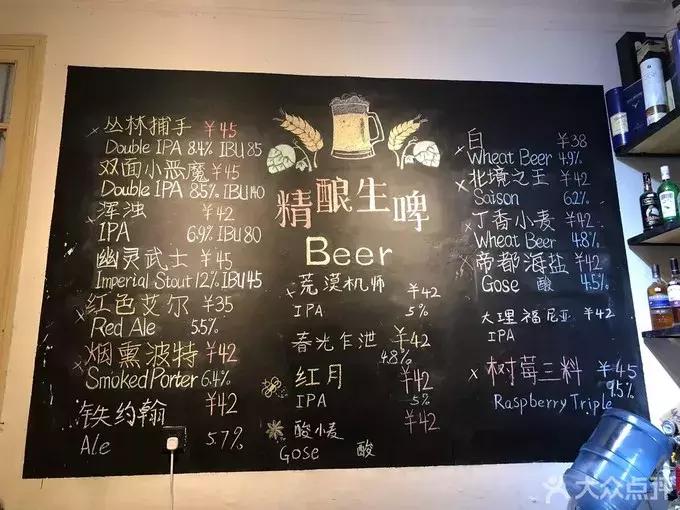 丛林捕手 ¥45
Double IPA 8.4% IBU85
双面小恶魔 ¥45
Double IPA 8.5% IBU140
浑浊 ¥42
IPA 6.9% IBU80
幽灵武士 ¥45
Imperial Stout 12% IBU45
红色艾尔 ¥35
Red Ale 5.5%
烟熏波特 ¥42
Smoked Porter 6.4%
铁约翰 ¥42
Ale 5.7%
精酿生啤
Beer
荒漠机师 ¥42
IPA 5%
春光乍泄 ¥42
4.8%
红月 ¥42
IPA 5%
酸小麦 ¥42
Gose 酸
白 ¥38
Wheat Beer 4.9%
北境之王 ¥42
Saison 6.2%
丁香小麦 ¥42
Wheat Beer 4.8%
帝都海盐 ¥42
Gose 酸 4.5%
大理福尼亚 ¥42
IPA
树莓三料 ¥45
9.5%
Raspberry Triple
大众点评